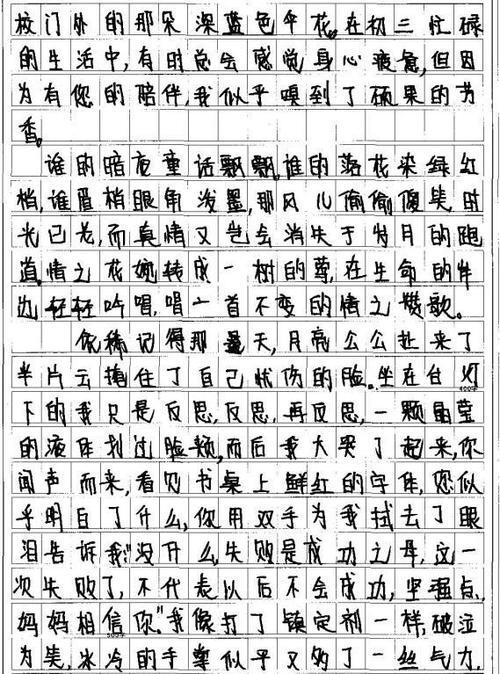 校门外的那朵深蓝色伞花。在初三忙碌
的生活中,有时总会感觉身心疲惫,但因
为有您的陪伴,我似乎嗅到了硕果的芳
香。
谁的暗夜童话飘飘,谁的落花染绿红
梢,谁眉梢眼角泼墨,那风儿偷偷傻笑,时
光已老,而真情又岂会消失于岁月的跑
道。情之花婉转成一树的萼,在生命的伴
边轻轻吟唱,唱一首不变的情之赞歌。
依稀记得那一天,月亮公公赴来了
半片云掩住了自己忧伤的脸。坐在台灯
下的我只是反思,反思,再反思,一颗晶莹
的液体划过脸颊,而后我大哭了起来,你
闻声而来,看见书桌上鲜红的字体,您似
乎明白了什么,你用双手为我拭去了眼
泪告诉我"没什么,失败是成功之母,这一
次失败了,不代表以后不会成功,坚强点,
妈妈相信你"我像打了镇定剂一样,破泣
为笑,冰冷的手掌似乎又多了一丝气力,